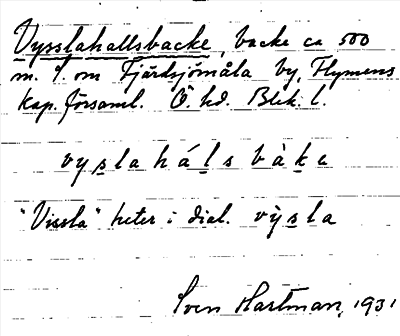 Vysslahallsbacke, backe ca 500
m. f. om Fjärdsjömåla by, Flymens
kap. församl. Ö. hd. Blek. l.
vyslahálsbàke
"Vissla" heter i dial. vỳsla
Sven Hartman, 1931